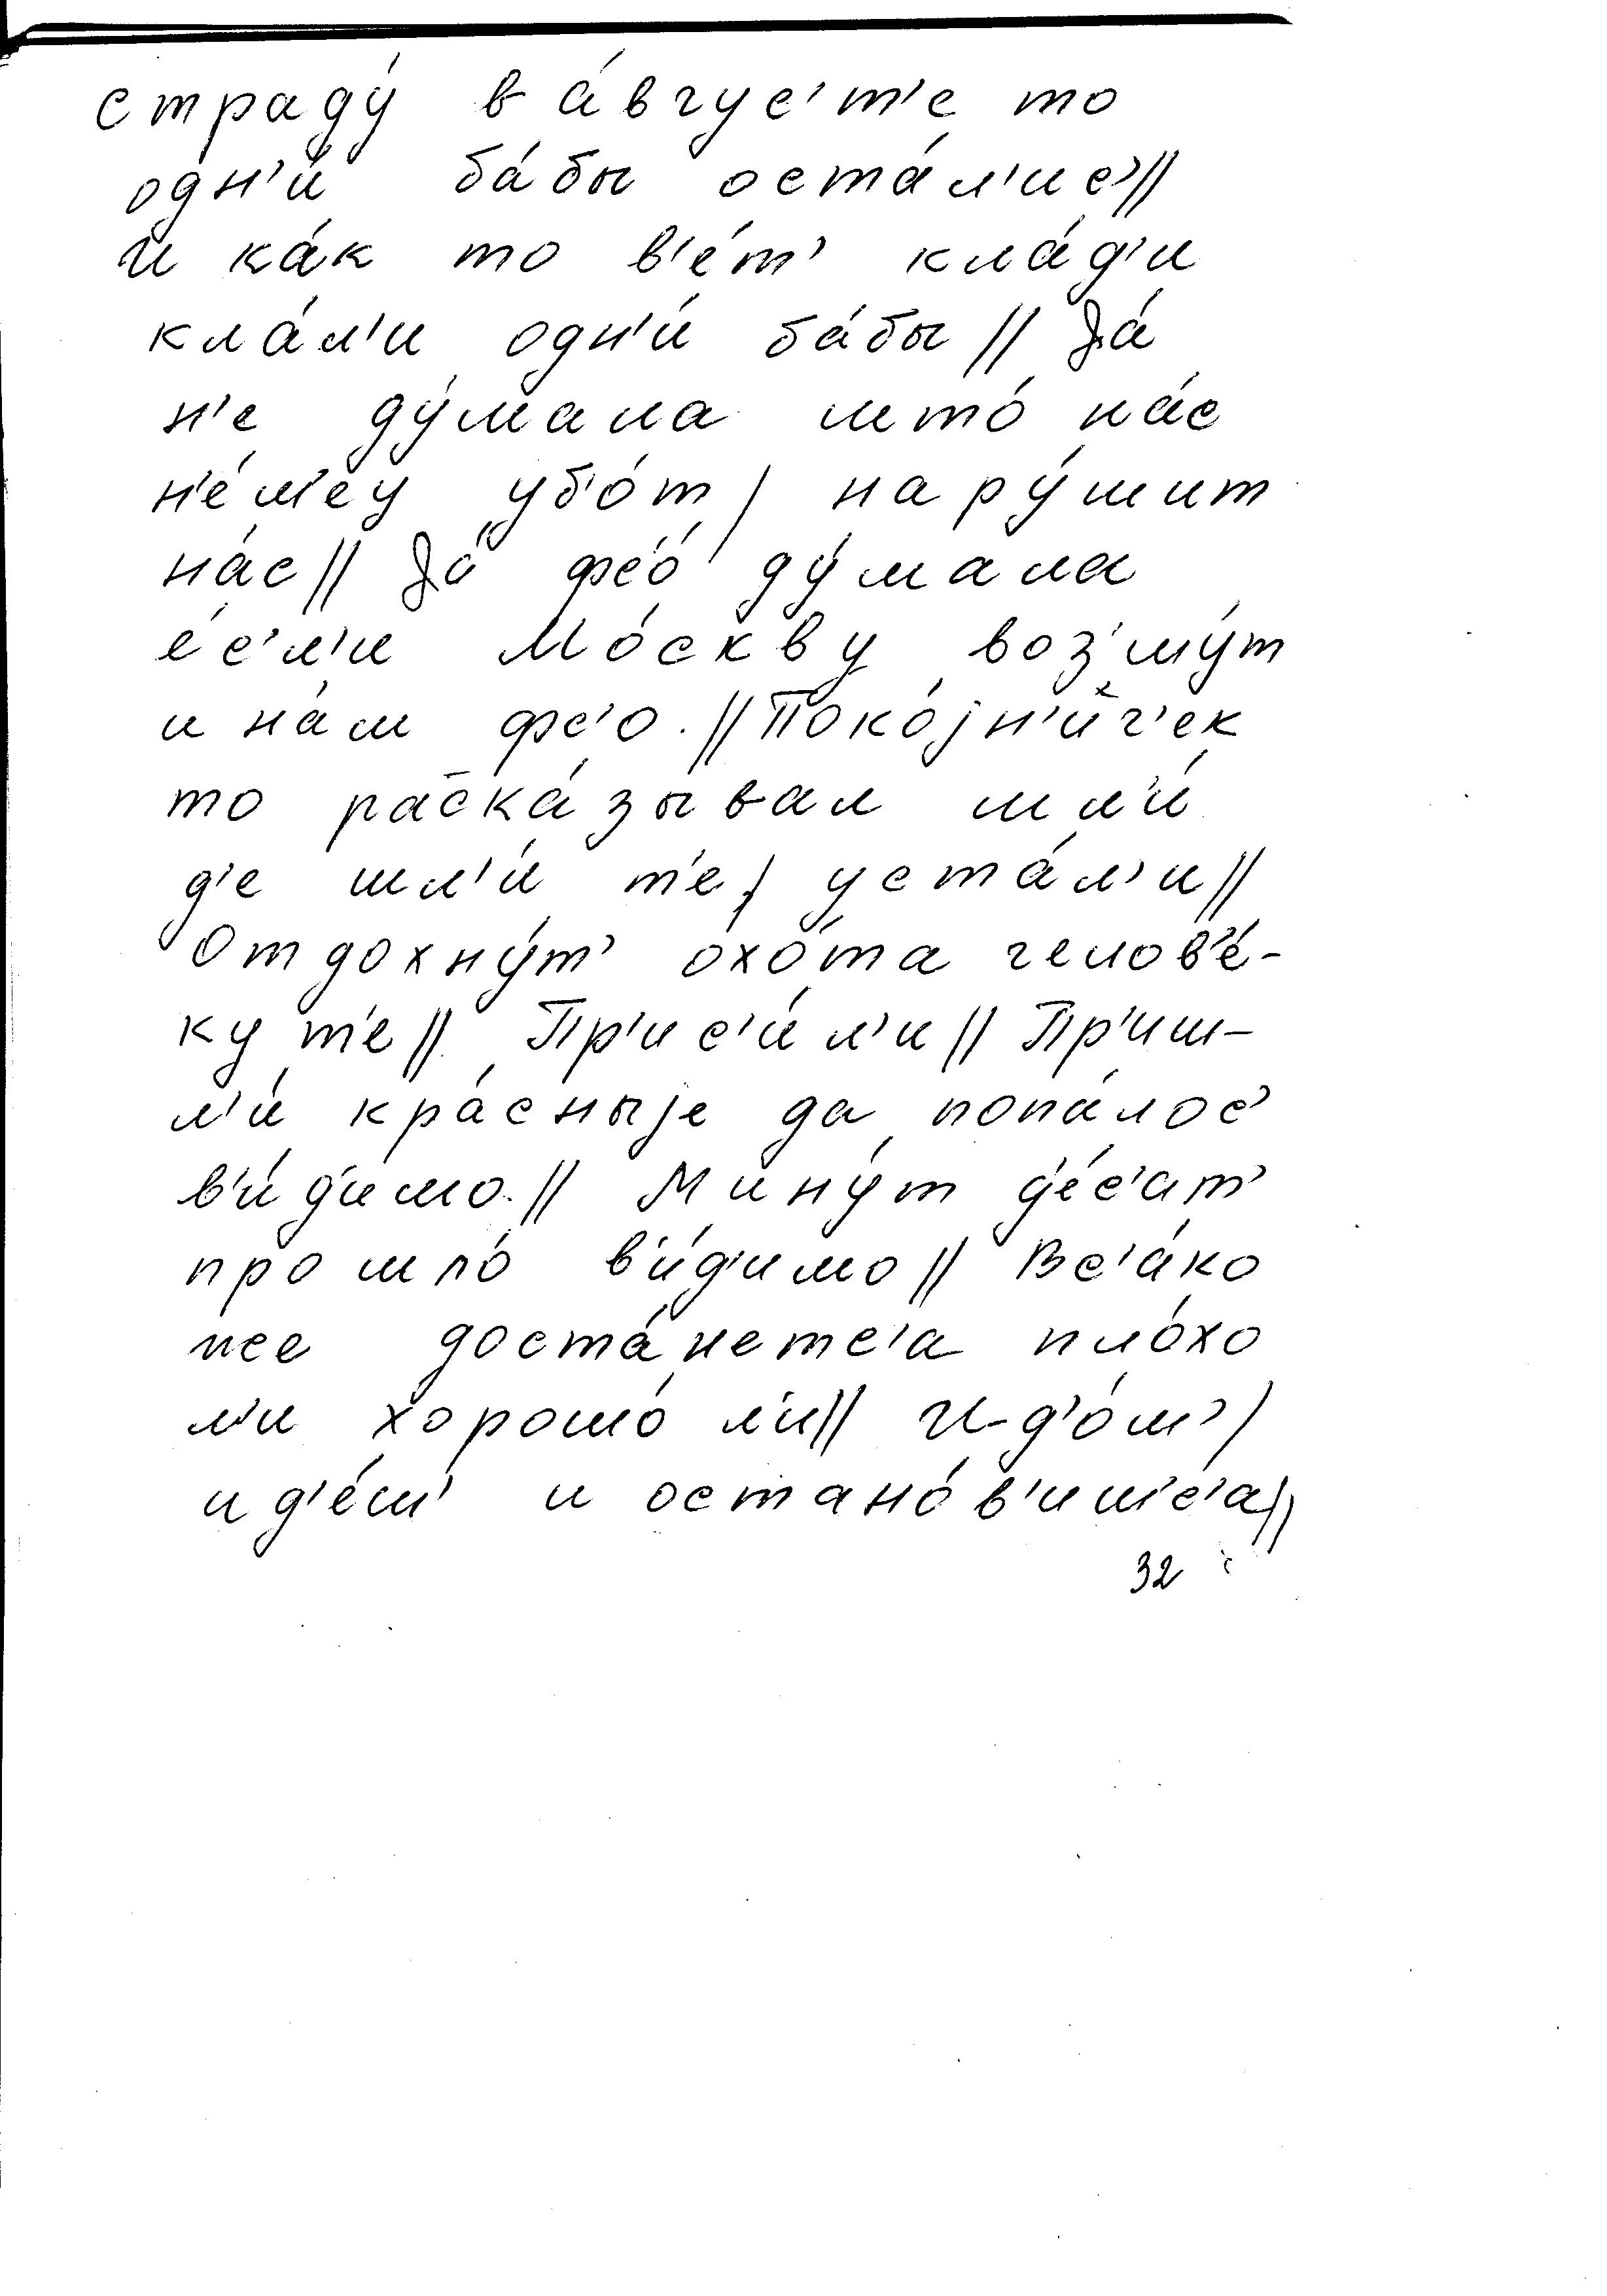 страду́ в а́вгус'т'е то
одн'и́ ба́бы оста́л'ис'//
и ка́к то в'е́т' кла́д'и
кла́л'и одн'и́ ба́бы // Да́
н'е ду́мала што́ на́с
н'е́м'еу уб'о́т / нару́шит
на́с // Да́ фс'о́ ду́мала
е́с'л'и Мо́скву воз'му́т
и на́м фс'о. // Поко́jн'ич'ек
то раска́зывал шл'и́
д'е шл'и́ т'е / уста́л'и //
Отдохну́т' охо́та челов'е́-
ку т'е // Пр'ис'и́л'и // Пр'иш-
л'и́ кра́сныjе да попа́лос'
в'и́д'имо. // Мину́т д'е́с'ат'
прошло́ в'и́д'имо // Вс'а́ко
же доста́нетс'а пло́хо
л'и хорошо́ л'и // И-д'о́ш' /
ид'е́ш' и остано́в'ишс'а //
32